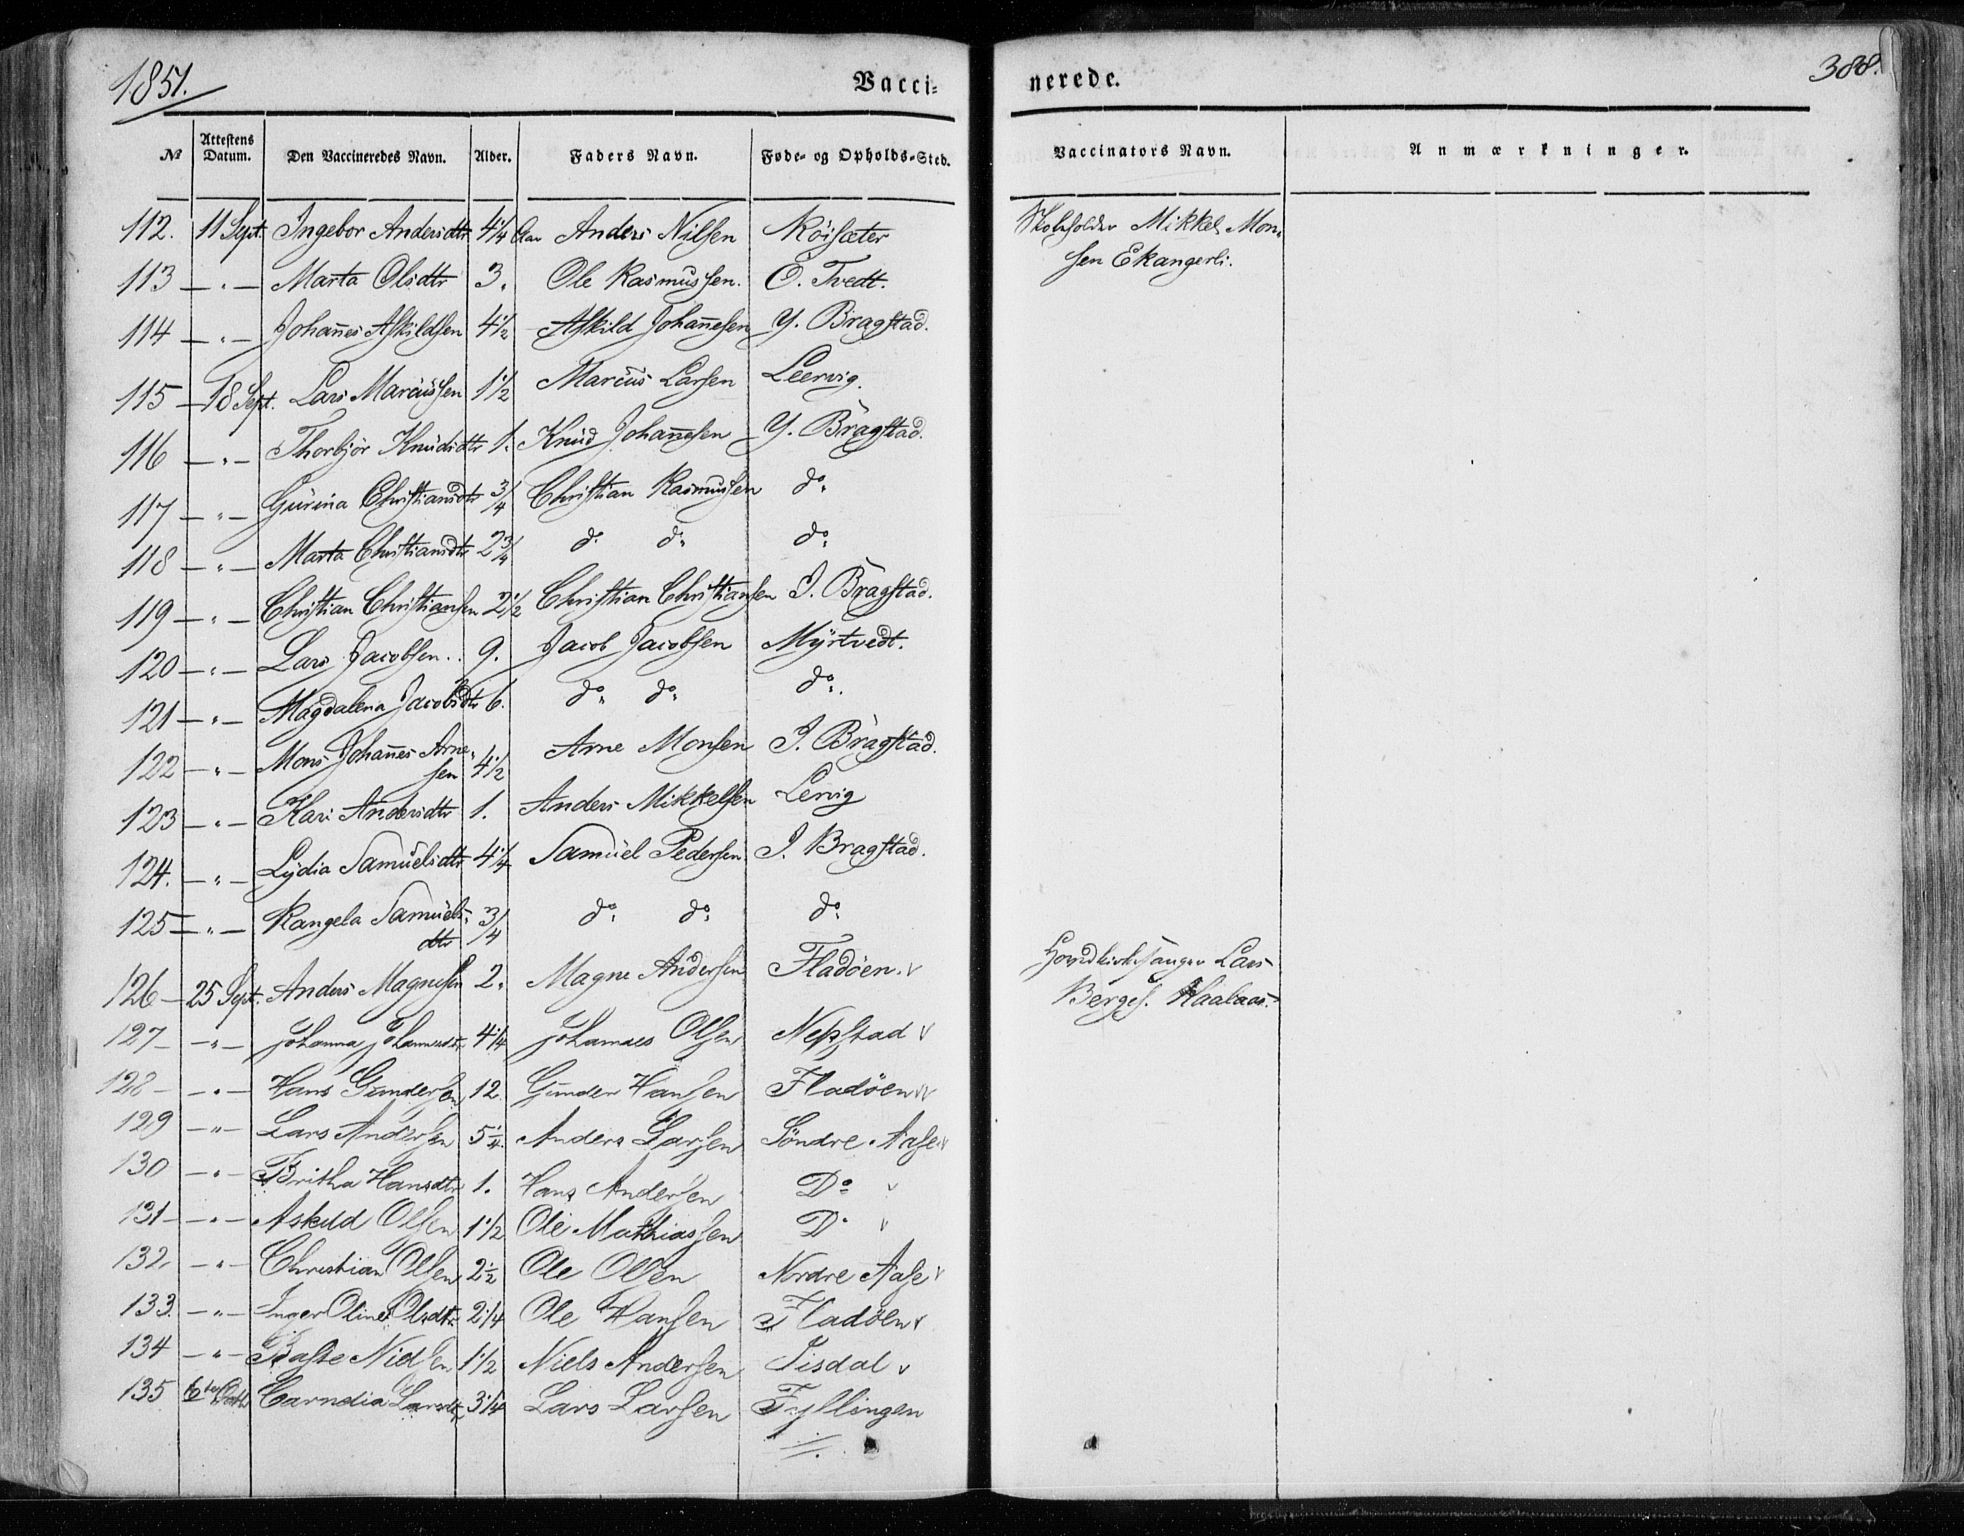 1851.
Vacci-
nerede.
388.
№ Attestens Datum. Den Vaccineredes Navn. Alder. Faders Navn. Føde- og Opholds-Sted. Vaccinators Navn. Anmærkninger.
112. 11 Sept. Ingebor Andersdtr 4 1/4 Aar Anders Nilsen Röisæter Mikkel Mon-
sen Ekangerli.
113 — " — Marta Olsdtr 3. Ole Rasmussen. Ö. Tvedt.
114 — " — Johannes Askildsen 4 1/2 Askild Johannesen Y. Bragstad.
115 — 18 Sept. Lars Marcussen 1 1/2 Marcus Larsen Leervig.
116 — " — Thorbjør Knudsdtr 1. Knud Johannesen Y. Bragstad.
117 — " — Gurina Christiansdtr 3/4 Christian Rasmussen do.
118 — " — Marta Christiansdtr 2 3/4 do do. do.
119 — " — Christian Christiansen 2 1/2 Christian Christiansen I. Bragstad.
120 — " — Lars Jacobsen. 9. Jacob Jacobsen Myrtvedt.
121 — " — Magdalena Jacobsdtr 6. do. do. do.
122 — " — Mons Johannes Arne-
sen 4 1/2 Arne Monsen I. Bragstad.
123 — " — Kari Andersdtr 1. Anders Mikkelsen Lervig
124. — " — Lydia Samuelsdtr 4 1/4 Samuel Pedersen. I. Bragstad.
125 — " — Rangela Samuels-
dtr 3/4 do. do. do.
126 — 25 Sept. Anders Magnesen 2. Magne Andersen Fladöen. v Lars
Berges. Haalaas.
127 — " — Johanna Johannesdtr 4 1/4 Johannes Olsen Nepstad v
128 — " — Hans Gundersen 12. Gunder Hansen Fladöen v
129 — " — Lars Andersen 5 1/4 Anders Larsen Söndre Aase v
130 — " — Britha Hansdtr 1. Hans Andersen Do v
131 — " — Askild Olsen 1 1/2 Ole Mathiassen Do v
132. — " — Christian Olsen 2 1/2 Ole Olsen Nordre Aase v
133. — " — Inger Oline Olsdtr 2 1/4 Ole Hansen Fladöen v
134 — " — Baste Nielsen 1 1/2 Niels Andersen Tisdal v
135 6te Larsdtr 3 1/4 Lars Larsen Fyllingen